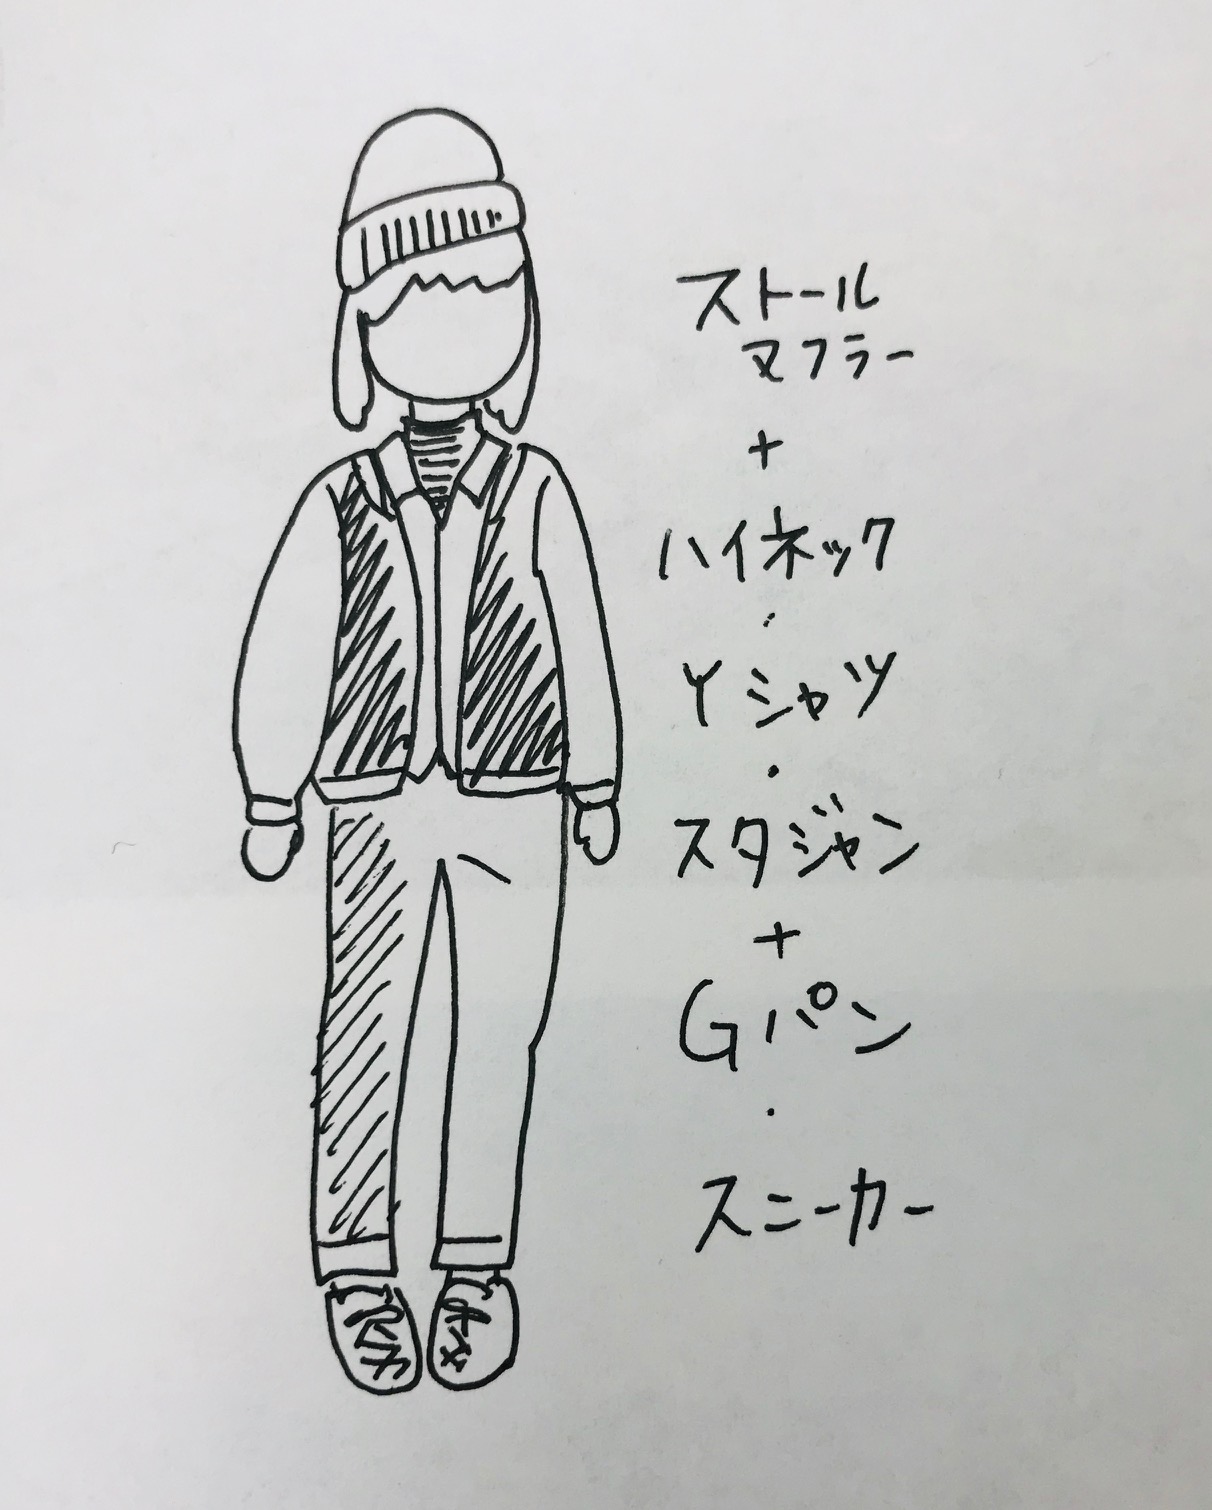 ストール
マフラー
+
ハイネック
・
Yシャツ
・
スタジャン
+
Gパン
・
スニーカー